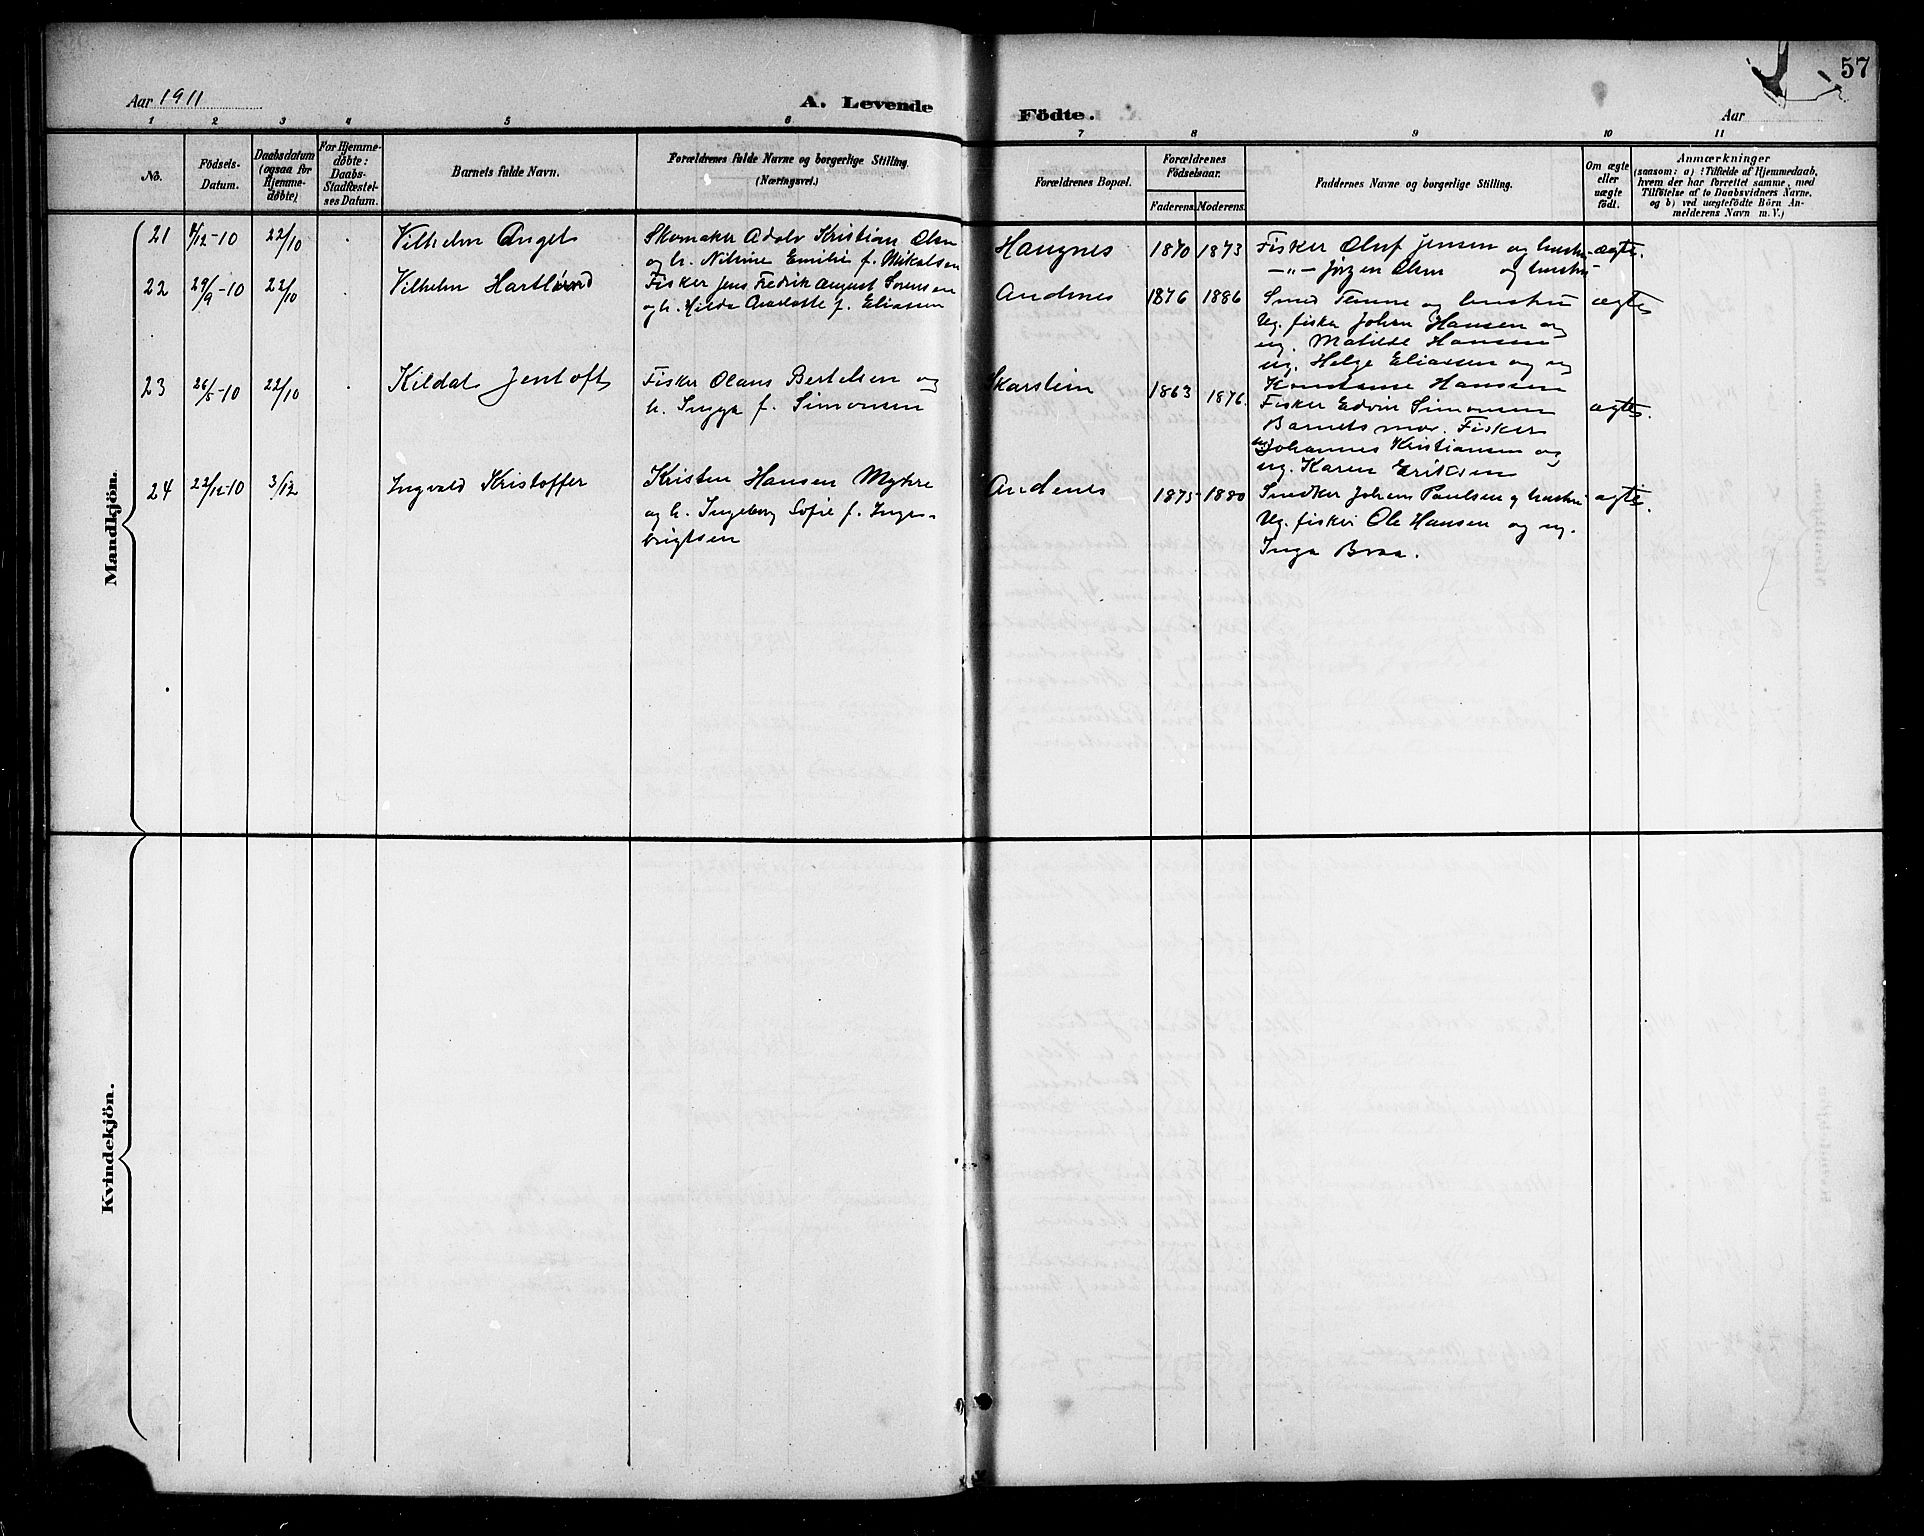 57
Aar 1911
A. Levende Födte.
Aar
1 2 3 4 5 6 7 8 9 10 11
No.
Födsels-Datum.
Daabsdatum (ogsaa for Hjemmedøbte)
For Hjemmedøbte: Daabs-Stadfæstelses Datum.
Barnets fulde Navn.
Forældrenes fulde Navne og borgerlige Stilling. (Næringsvei.)
Forældrenes Bopæl.
Forældrenes Födselsaar.
Faderens. Moderens.
Faddernes Navne og borgerlige Stilling.
Om ægte eller uægte födt.
Anmærkninger
(saasom: a) i Tilfælde af Hjemmedaab,
hvem der har forrettet samme, med
Tilføielse af to Daabsvidners Navne.
og b) ved uægtefödte Börn An-
melderens Navn m. V.)
Mandkjön.
21 22/10 Vilhelm Angel Skomaker Adolv Kristian Olsen Haugnes 1870 1873 Fisker Oluf Jensen og hustru ægte.
og h. Nilsine Emilie f. Mikalsen
—"— Jørgen Olsen og hustru
22 29/9-10 22/10 Vilhelm Fisker Jens Fredrik August Sørensen Andenes 1876 1886 Smed Temme og hustru ægte
og h. Hilda Charlotte f. Eliassen
Ug. fisker Johan Hansen og
ug. Matilde Hansen
ug. Helge Eliassen og ug
Konstanse Hanssen
23 26/5-10 22/10 Kildal Jentoft Fisker Olaus Bertelsen og Skarstein 1863 1876. Fisker Edvin Simonsen ægte.
h. Inga f. Simonsen
Barnets mor. Fisker
Johannes Kristiansen og
ug. Karen Eriksen
24 22/11-10 3/12 Ingvald Kristoffer Kristen Hansen Myhre Andenes 1875 1880 Snedker Johan Paulsen og hustru ægte.
og h. Ingeborg Sofie f. Inge-
brigtsen
Ug. fisker Ole Hansen og ug.
Inga Braa.
Kvindekjön.